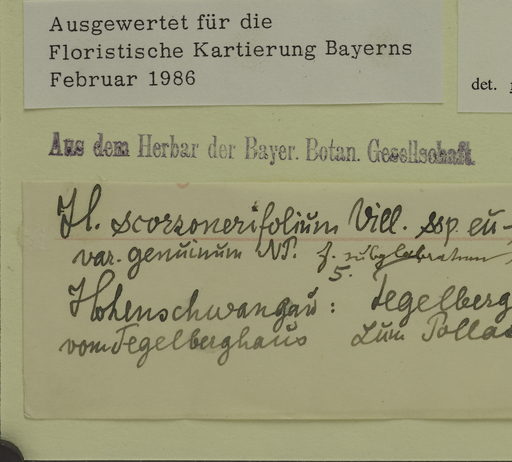 Ausgewertet für die
Floristische Kartierung Bayerns
Februar 1986
det.
Aus dem Herbar der Bayer. Botan. Gesellschaft.
H. scorzonerifolium Vill. ssp. eu-
var. genuinum NP. f. subglabratum
5.
Hohenschwangau: Tegelberg
vom Tegelberghaus zum Pollat